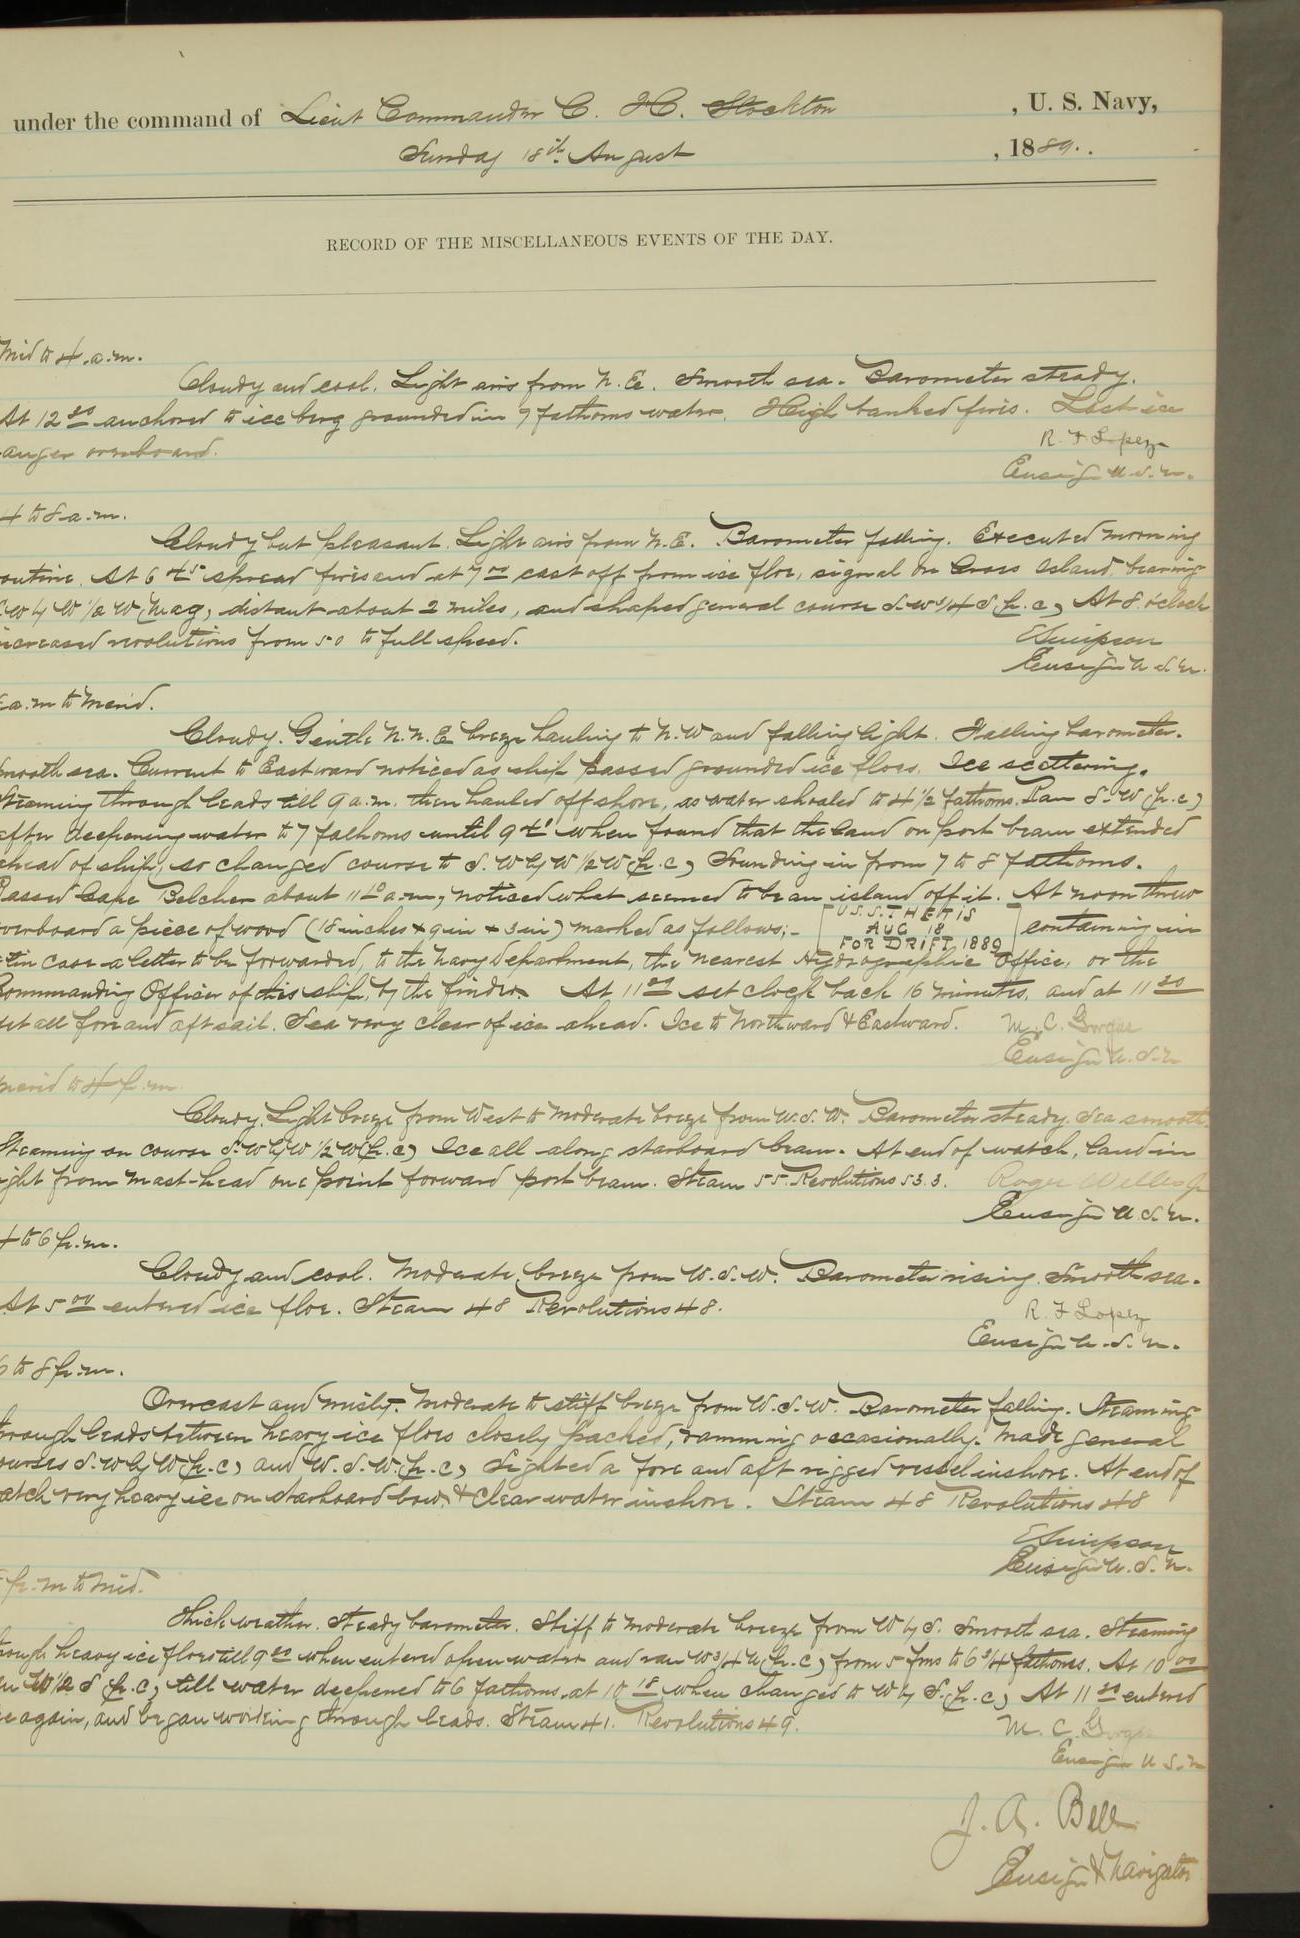 under the command of Lieut Commander C. H. Stockton , U. S. Navy,
Sunday 18th August , 1889.
RECORD OF THE MISCELLANEOUS EVENTS OF THE DAY.
Mid to 4 a.m.
Cloudy and cool. Light airs from N. E. Smooth sea. Barometer steady.
At 12 30 anchored to ice berg grounded in 7 fathoms water. Heigh banked fires. Lost ice
anger overboard.
R. F Lopez
Ensign U.S.N.
4 to 8 a.m.
Cloudy but pleasant. Light airs from N.E. Barometer falling. Executed morning
outine. At 6 45 spread fires and at 7 00 cast off from ice floe, signal on Cross Island bearing
W by W 1/2 W, Mag, distant about 2 miles, and shaped general course S.W 3/4 S (p.c) At 8 o'clock
increased revolutions from 50 to full speed.
E Simpson
Ensign U.S.N.
a.m to Merid.
Cloudy. Gentle N.N.E breeze hauling to N.W and falling light. Falling barometer.
mooth sea. Current to Eastward noticed as ship passed grounded ice floes. Ice scattering.
Steaming through leads till 9 a.m. then hauled off shore, as water shoaled to 4 1/2 fathoms. Ran S.W (p.c)
after deepening water to 7 fathoms until 9 when found that the land on port beam extended
ahead of ship, so changed course to S.W by W 1/2 W (p.c) Sounding in from 7 to 8 fathoms.
Passed Cape Belcher about 11 10 a.m, noticed what seemed to be an island off it. At noon threw
overboard a piece of wood (18 inches x 9 in x 3 in) marked as follows;- [U.S.S. THETIS
AUG 18
FOR DRIFT 1889] containing in
tin case a letter to be forwarded, to the Navy Department, the nearest Hydrographic Office, or the
Commanding Officer of this ship, by the finder. At 11 set clock back 16 minutes, and at 11 30
set all fore and aft sail. Sea very clear of ice ahead. Ice to Northward & Eastward.
M. C. Gorgas
Ensign U.S.N
Merid to 4 p.m.
Cloudy. Light breeze from West to moderate breeze from W.S.W. Barometer steady. Sea smooth.
Steaming on course S.W by W 1/2 W (p.c) Ice all along starboard beam. At end of watch, land in
ight from mast-head one point forward port beam. Steam 55. Revolutions 53.3.
Roger Welles Jr
Ensign U.S.N.
4 to 6 p.m.
Cloudy and cool. Moderate breeze from W.S.W. Barometer rising. Smooth sea.
At 5 00 entered ice floe. Steam 48 Revolutions 48.
R. F Lopez
Ensign U.S.N.
6 to 8 p.m.
Overcast and misty. Moderate to stiff breeze from W.S.W. Barometer falling. Steaming
through leads between heavy ice floes closely packed, ramming occasionally. Made general
ourses S.W by W (p.c) and W.S.W. (p.c) Sighted a fore and aft rigged vessel inshore. At end of
atch very heavy ice on starboard bow & clear water inshore. Steam 48 Revolutions 48
E Simpson
Ensign U.S.N.
p.m to Mid.
Thick weather. Steady barometer. Stiff to moderate breeze from W by S. Smooth sea. Steaming
rough heavy ice floes till 9 when entered open water and ran W 3/4 (p.c) from 5 fms to 6 3/4 fathoms. At 10 00
W 1/2 S (p.c) till water deepened to 6 fathoms, at 10 18 when changed to W by S. (p.c) At 11 30 entered
ce again, and began working through leads. Steam 41. Revolutions 49.
M. C. Gorgas
Ensign U.S.N
J. A. Bell
Ensign & Navigator